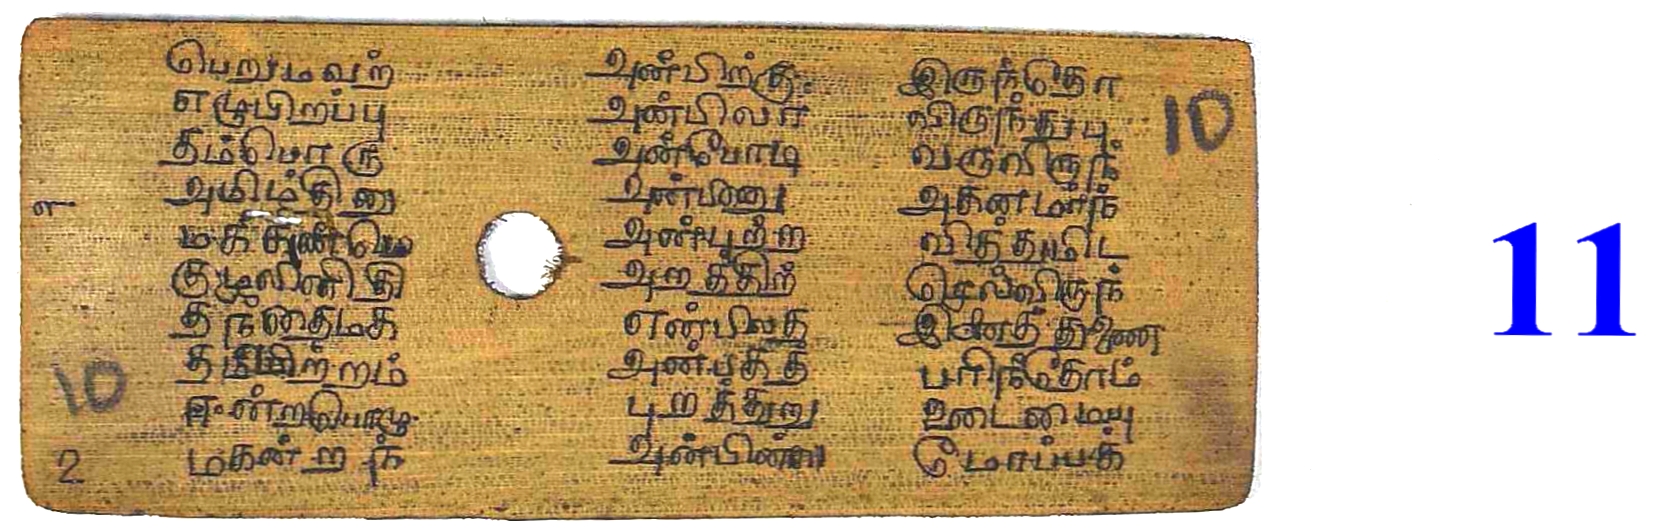 பெறுமவற்
எழுபிறப்பு
தம்பொரு
அமிழ்தினு
மக்கள்மெ
குழலினிதி
தந்தைமக
தம்மிற்றம்
ஈன்றபொழு
மகன்றந்
அன்பிற்கு
அன்பிலா
அன்போடி
அன்பீனு
அன்புற்ற
அறத்திற்
என்பிலத
அன்பகத்த
புறத்துறு
அன்பின்
இருந்தோ
விருந்துபு
வருவிருந்
அகனமர்ந்
வித்துமிட
செல்விருந்
இனைத்துணை
பரிந்தோம்
உடைமையு
மோப்பக்
10
10
2
11